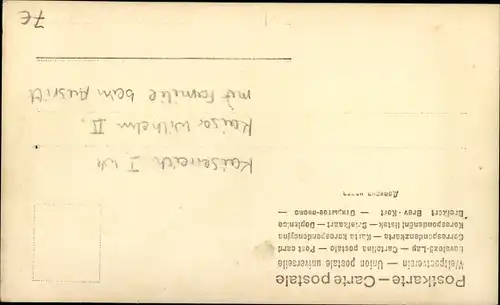 Postkarte – Carte postale
Weltpostverein – Union postale universelle
Levelező-Lap – Cartolina postale – Post card
Correspondenzkarte – Karta korespondencyjna
Korespondenční lístek – Briefkaart – Dopisnica
Brefkort Brev-Kort – Открытое письмо –
Kaiserreich I WK
Kaiser Wilhelm II.
mit Familie beim Ausritt
7€